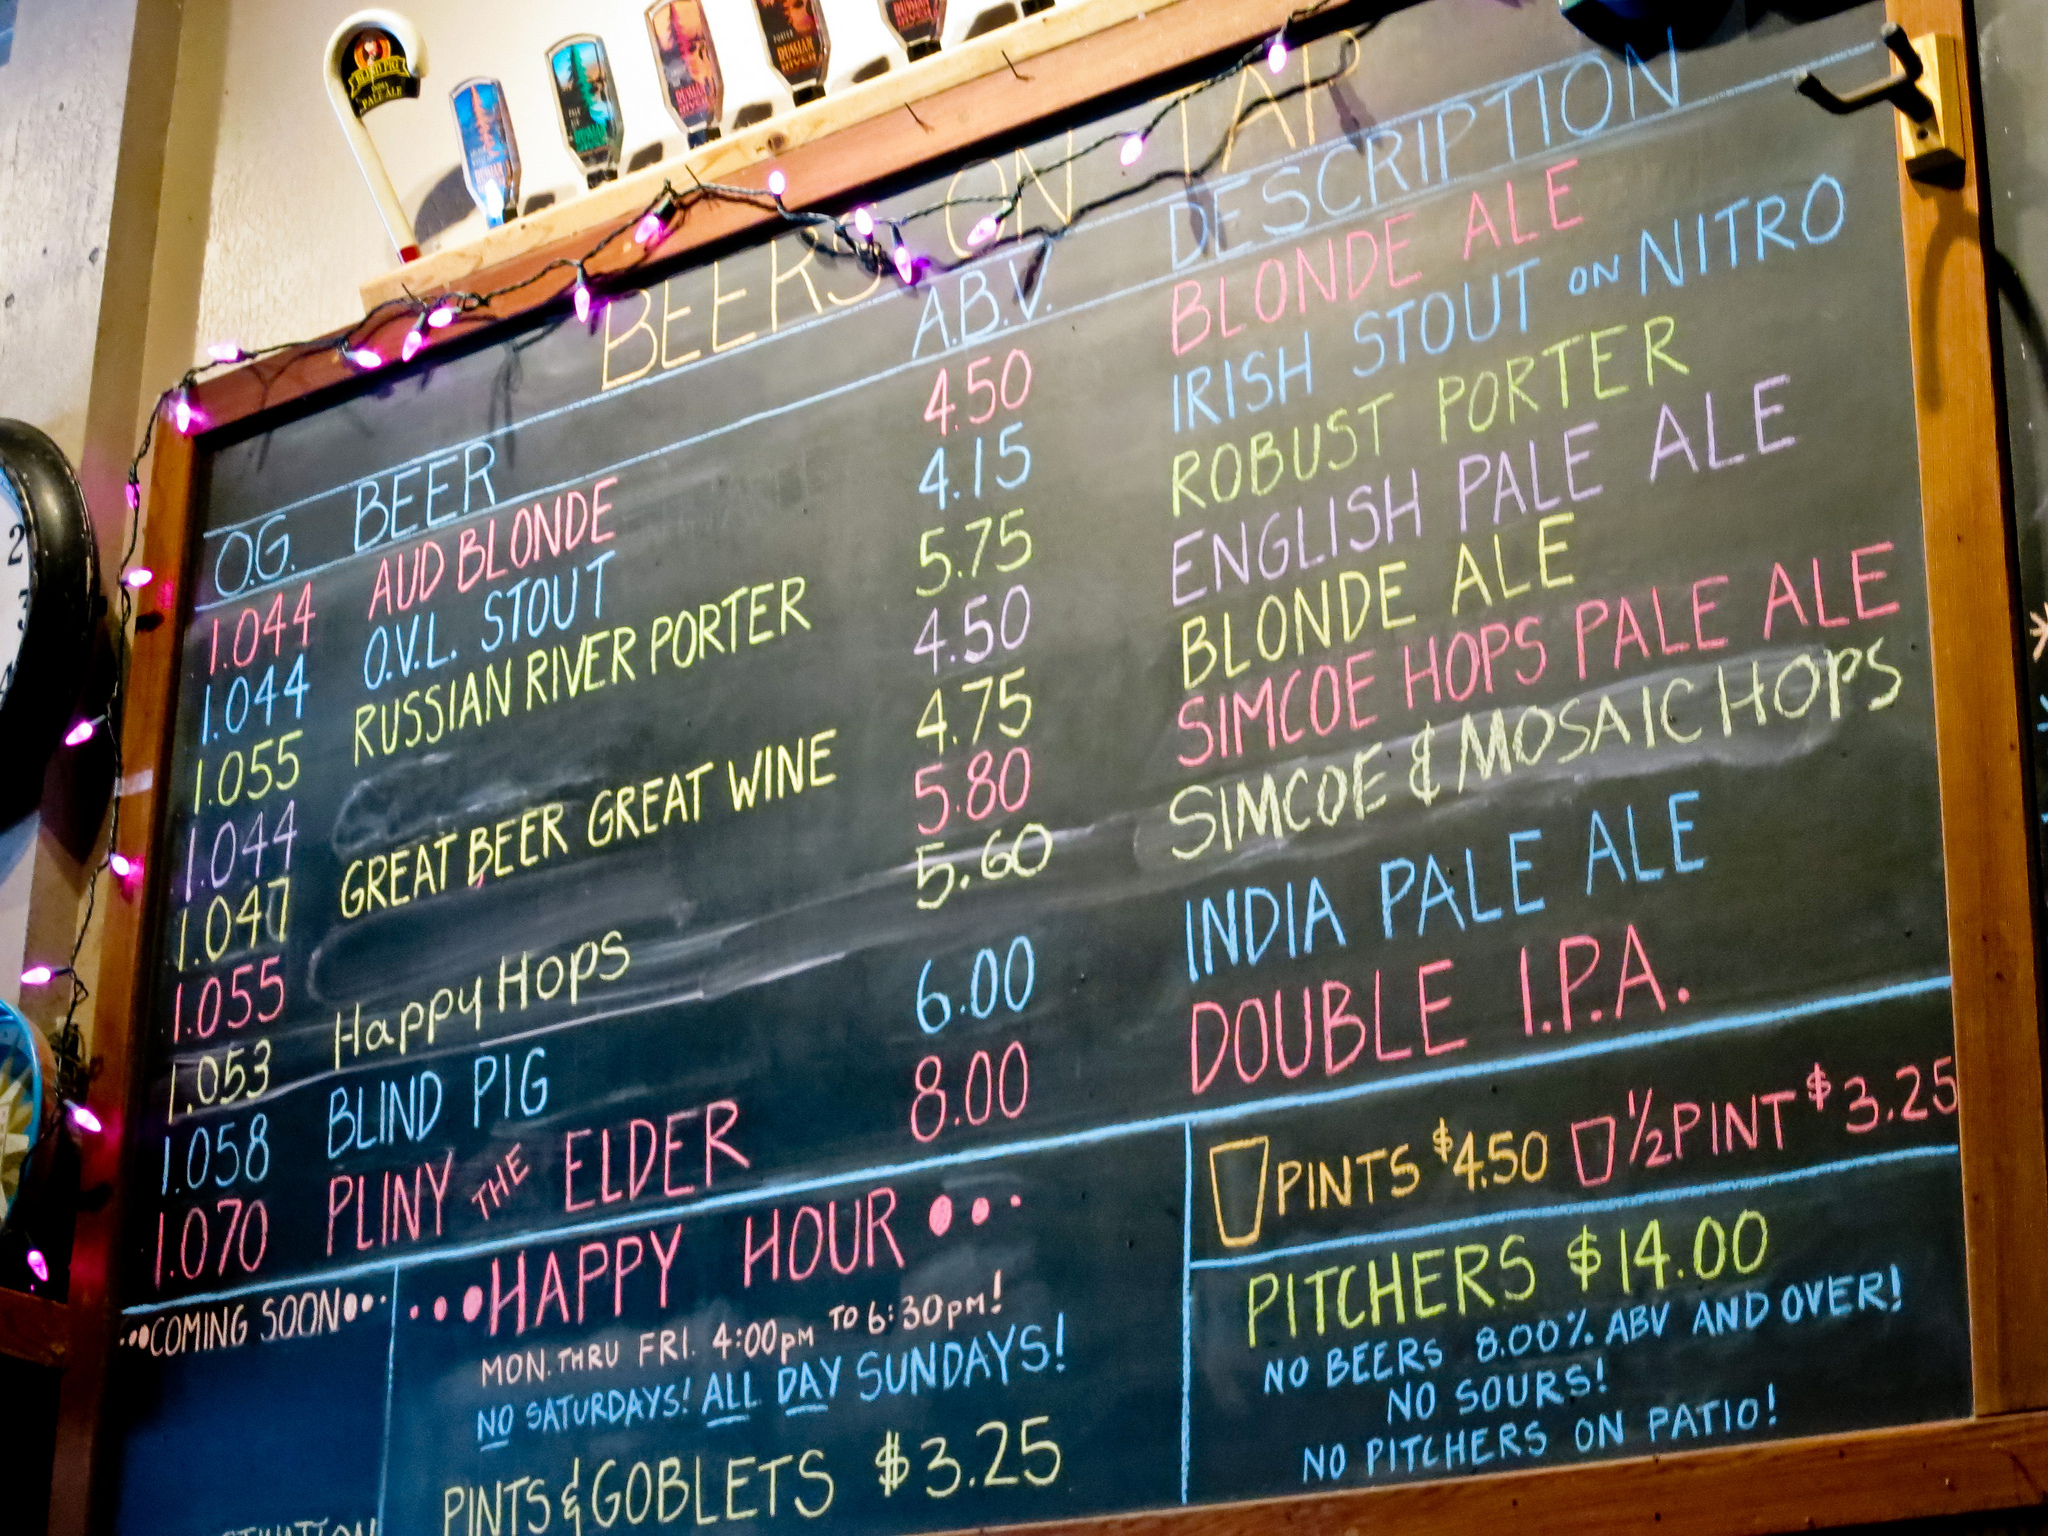 BLIND PIG
INDIA
PALE ALE
RUSSIAN
RIVER
PORTER
RUSSIAN
RIVER
BEERS ON TAP
O.G. BEER A.B.V. DESCRIPTION
1.044 AUD BLONDE 4.50 BLONDE ALE
1.044 O.V.L. STOUT 4.15 IRISH STOUT ON NITRO
1.055 RUSSIAN RIVER PORTER 5.75 ROBUST PORTER
1.044 4.50 ENGLISH PALE ALE
1.047 GREAT BEER GREAT WINE 4.75 BLONDE ALE
1.055 5.80 SIMCOE HOPS PALE ALE
1.053 Happy Hops 5.60 SIMCOE & MOSAIC HOPS
1.058 BLIND PIG 6.00 INDIA PALE ALE
1.070 PLINY THE ELDER 8.00 DOUBLE I.P.A.
...COMING SOON...
...HAPPY HOUR...
MON. THRU FRI. 4:00pm TO 6:30pm!
NO SATURDAYS! ALL DAY SUNDAYS!
PINTS & GOBLETS $3.25
PINTS $4.50 1/2 PINT $3.25
PITCHERS $14.00
NO BEERS 8.00% ABV AND OVER!
NO SOURS!
NO PITCHERS ON PATIO!
2
3
4